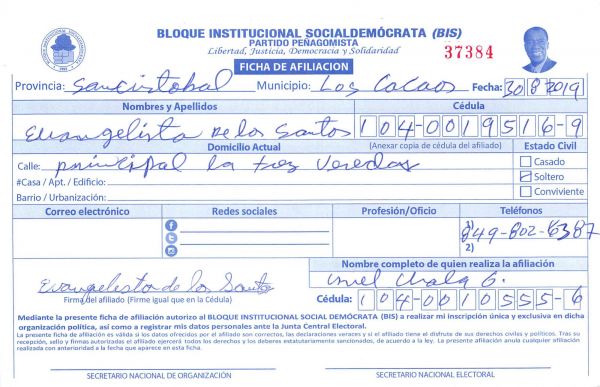 BLOQUE INSTITUCIONAL SOCIALDEMÓCRATA (BIS)
PARTIDO PEÑAGOMISTA
Libertad, Justicia, Democracia y Solidaridad
37384
FICHA DE AFILIACION
Provincia: San Cristobal Municipio: Los Cacaos Fecha: 30/8/2019
Nombres y Apellidos Cédula
Evangelista De los Santos 104-0019516-9
Domicilio Actual (Anexar copia de cédula del afiliado) Estado Civil
Calle: principal la tres Veredas Casado
#Casa / Apt. / Edificio: Soltero
Barrio / Urbanización: Conviviente
Correo electrónico Redes sociales Profesión/Oficio Teléfonos
1) 849-802-6387
2)
Nombre completo de quien realiza la afiliación
Evangelista de los Santos
Firma del afiliado (Firme igual que en la Cédula) Cédula: 104-0010555-6
Mediante la presente ficha de afiliación autorizo al BLOQUE INSTITUCIONAL SOCIAL DEMÓCRATA (BIS) a realizar mi inscripción única y exclusiva en dicha
organización política, así como a registrar mis datos personales ante la Junta Central Electoral.
La presente ficha de afiliación es válida si los datos ofrecidos por el afiliado son correctos, las declaraciones veraces y si el afiliado tiene el disfrute de sus derechos civiles y políticos. Tras su
recepción, sello y firmas autorizadas el afiliado ejercerá todos los derechos y los deberes estatutariamente sancionados, de acuerdo a la ley. La presente afiliación anula cualquier afiliación
realizada con anterioridad a la fecha que aparece en esta ficha.
SECRETARIO NACIONAL DE ORGANIZACIÓN SECRETARIO NACIONAL ELECTORAL